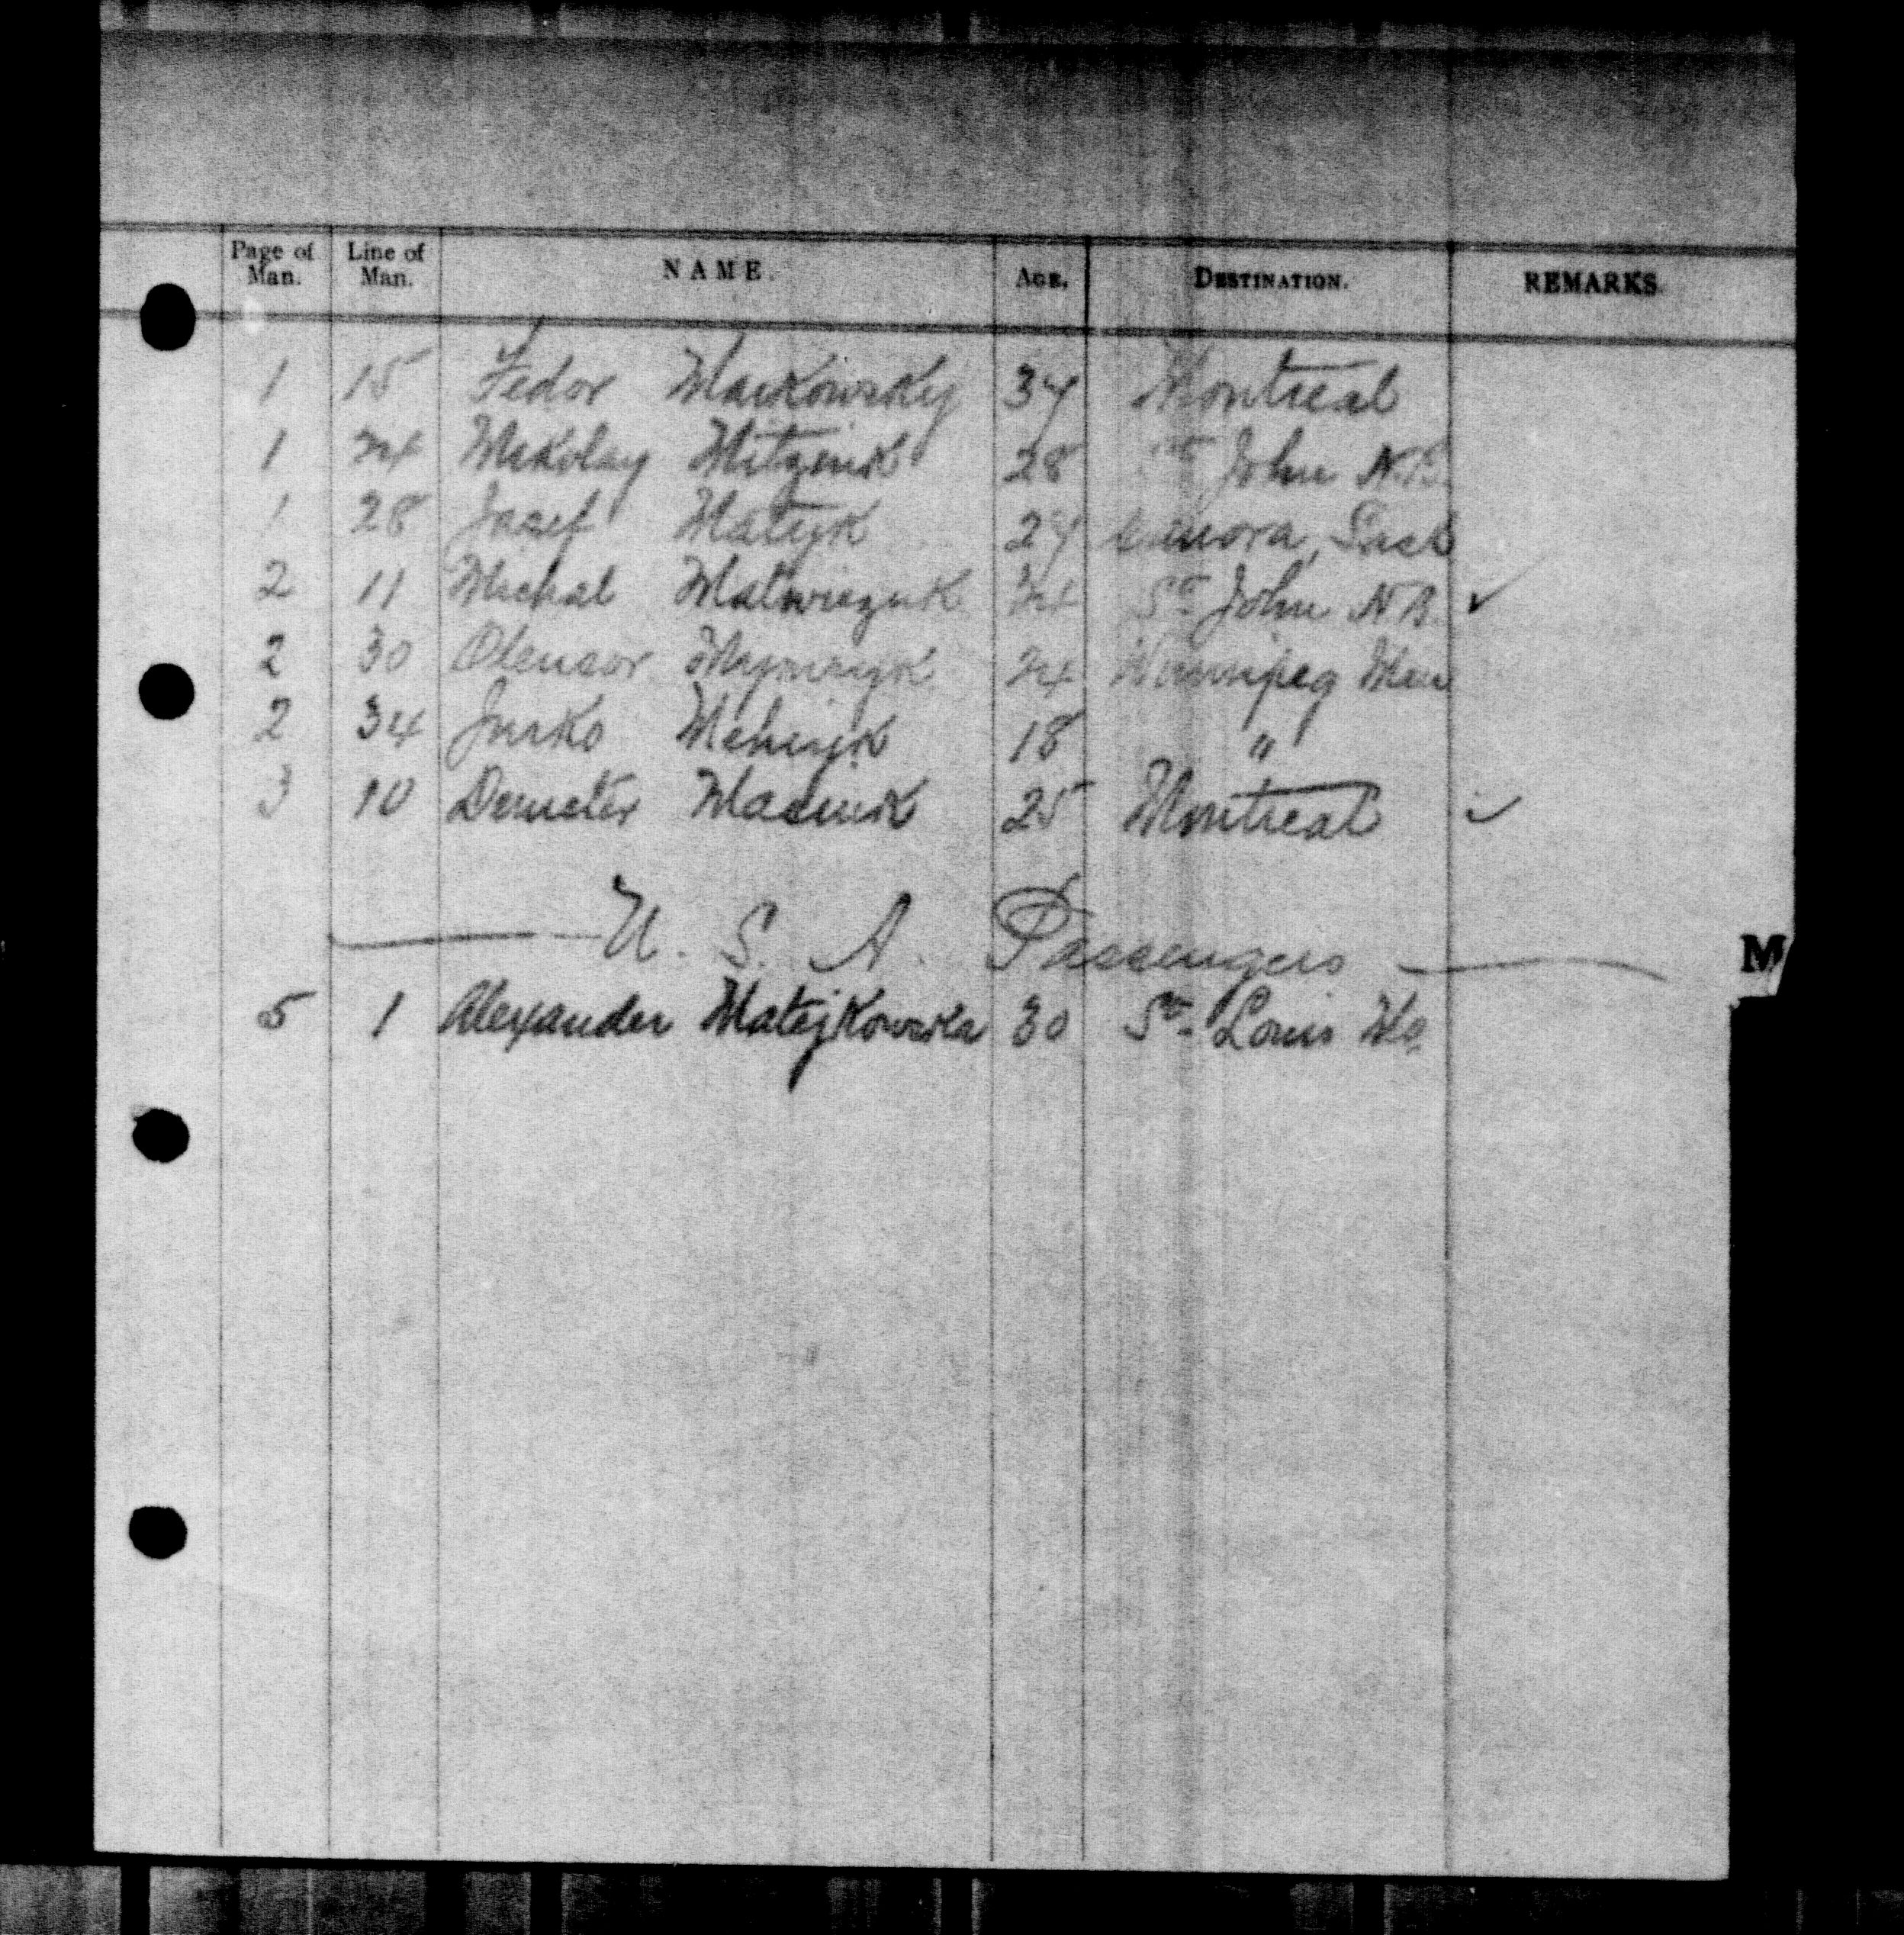 Page of Man. Line of Man. NAME. AGE. DESTINATION. REMARKS.
1 15 Fedor Markowsky 34 Montreal
1 24 Mikolay Mitzenik 28 St John N.B.
1 28 Josef Matejk Sask
2 11 Michal Matwiezuk 24 St John N.B. ✓
2 30 24 Winnipeg Man
2 34 Jurko 18 "
3 10 Demeter Masnik 25 Montreal ✓
U. S. A. Passengers
M
5 1 Alexander Matejkowska 30 St. Louis Mo.